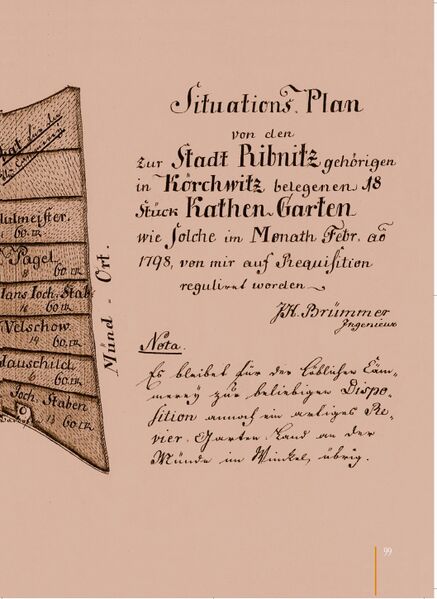 Situations Plan
von den
zur Stadt Ribnitz gehörigen
in Körchwitz belegenen 18
Stück Kathen-Garten
wie solche im Monath Febr. aō
1798, von mir auf Requisition
reguliret worden
JH. Brümmer
Ingenieur
Nota.
Es bleibet für der Löblichen Cäm-
merey zur beliebigen Dispo-
sition annoch ein artiges Re-
vier Garten Land an der
Münde im Winkel, übrig.
Münd - Ort.
ulmeister.
60
Pagel.
8 60
Hans Joch. Stab
16 60
Velschow
14 60
Hauschild.
60
Joch. Staben
13 60
99